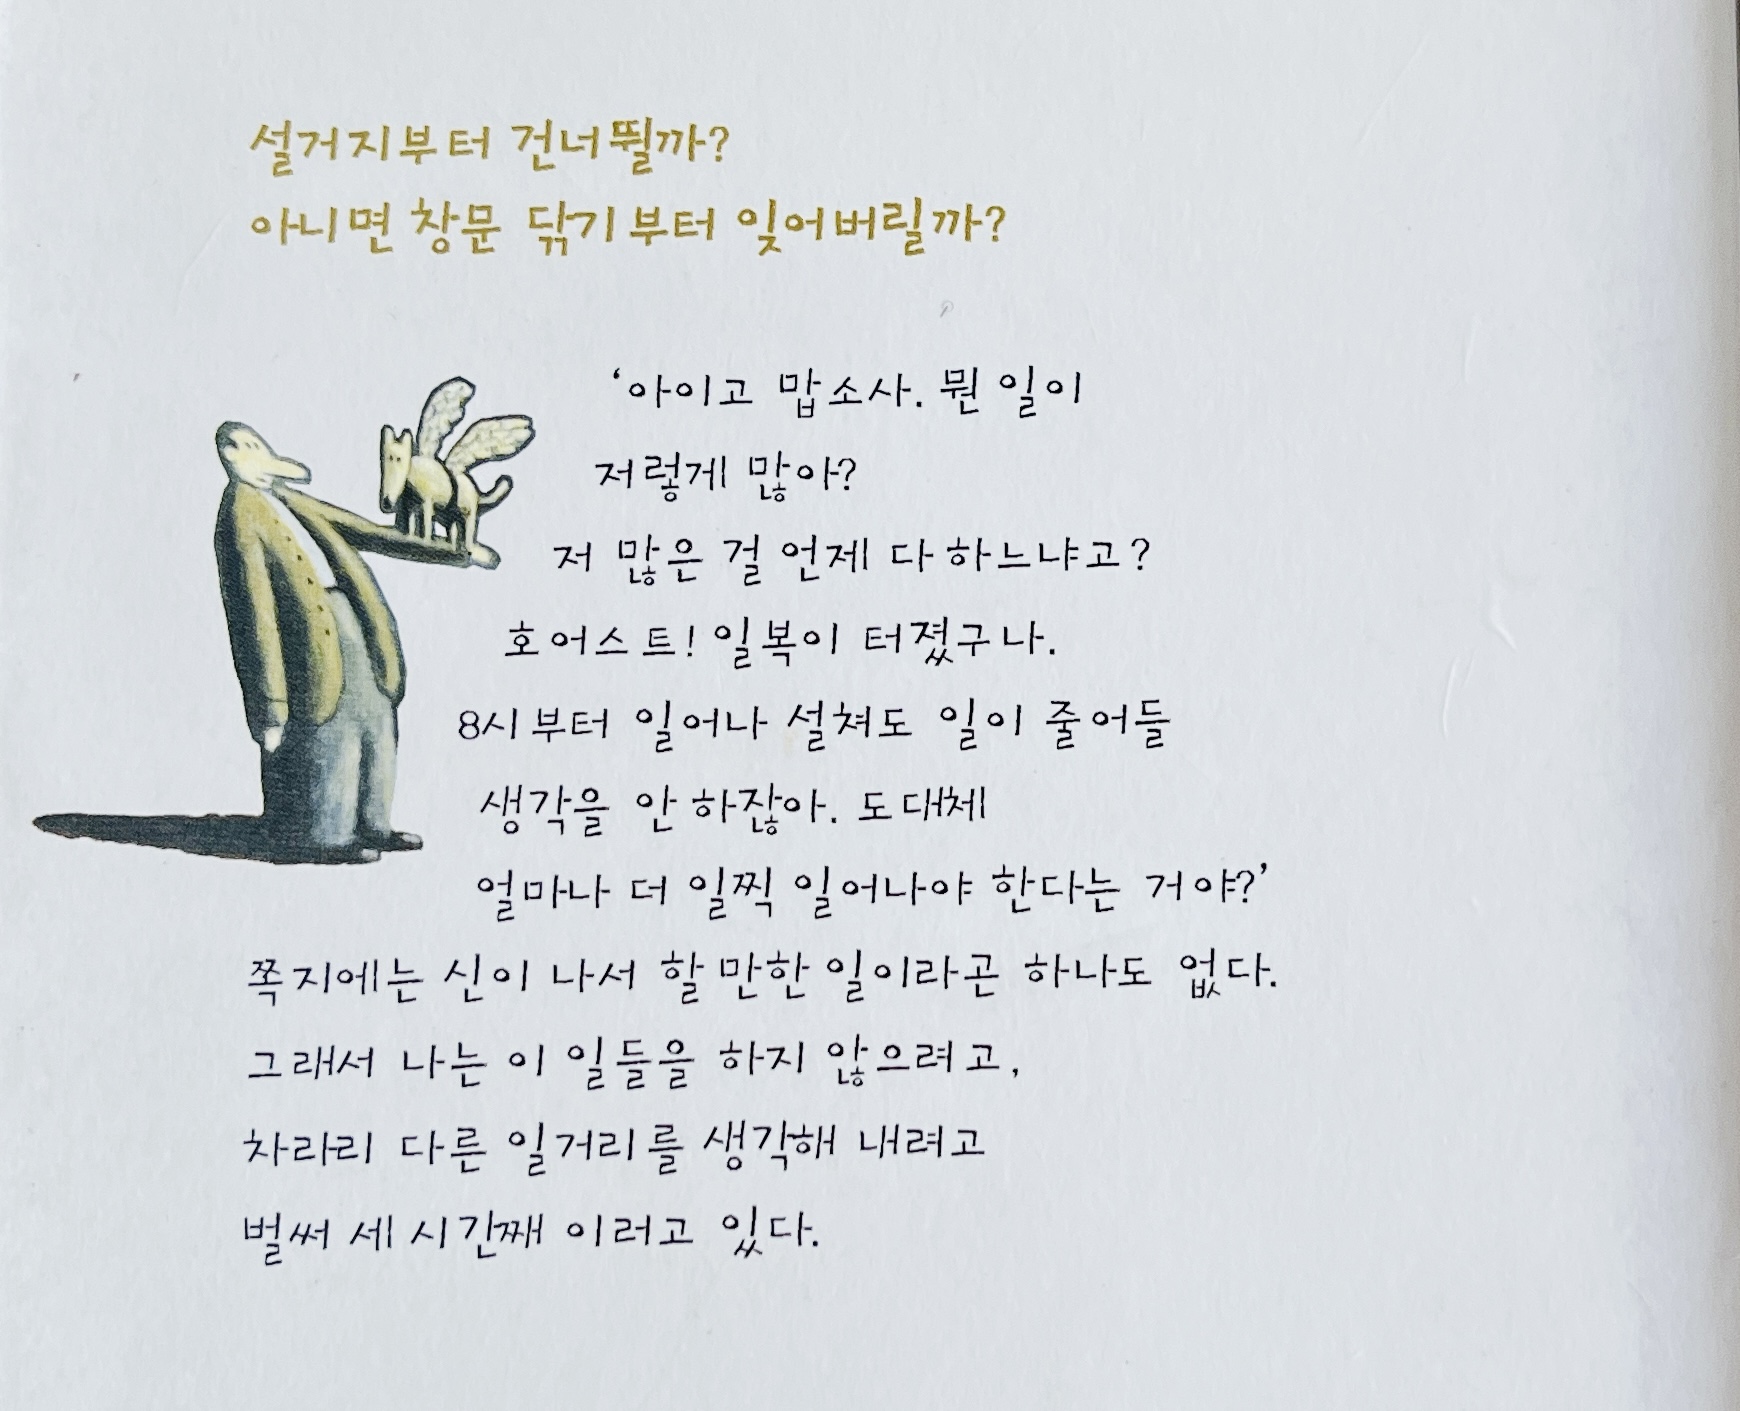 설거지부터 건너뛸까?
아니면 창문 닦기부터 잊어버릴까?
‘아이고 맙소사. 뭔 일이
저렇게 많아?
저 많은 걸 언제 다 하느냐고?
호어스트! 일복이 터졌구나.
8시부터 일어나 설쳐도 일이 줄어들
생각을 안 하잖아. 도대체
얼마나 더 일찍 일어나야 한다는 거야?’
쪽지에는 신이 나서 할 만한 일이라곤 하나도 없다.
그래서 나는 이 일들을 하지 않으려고,
차라리 다른 일거리를 생각해 내려고
벌써 세 시간째 이러고 있다.